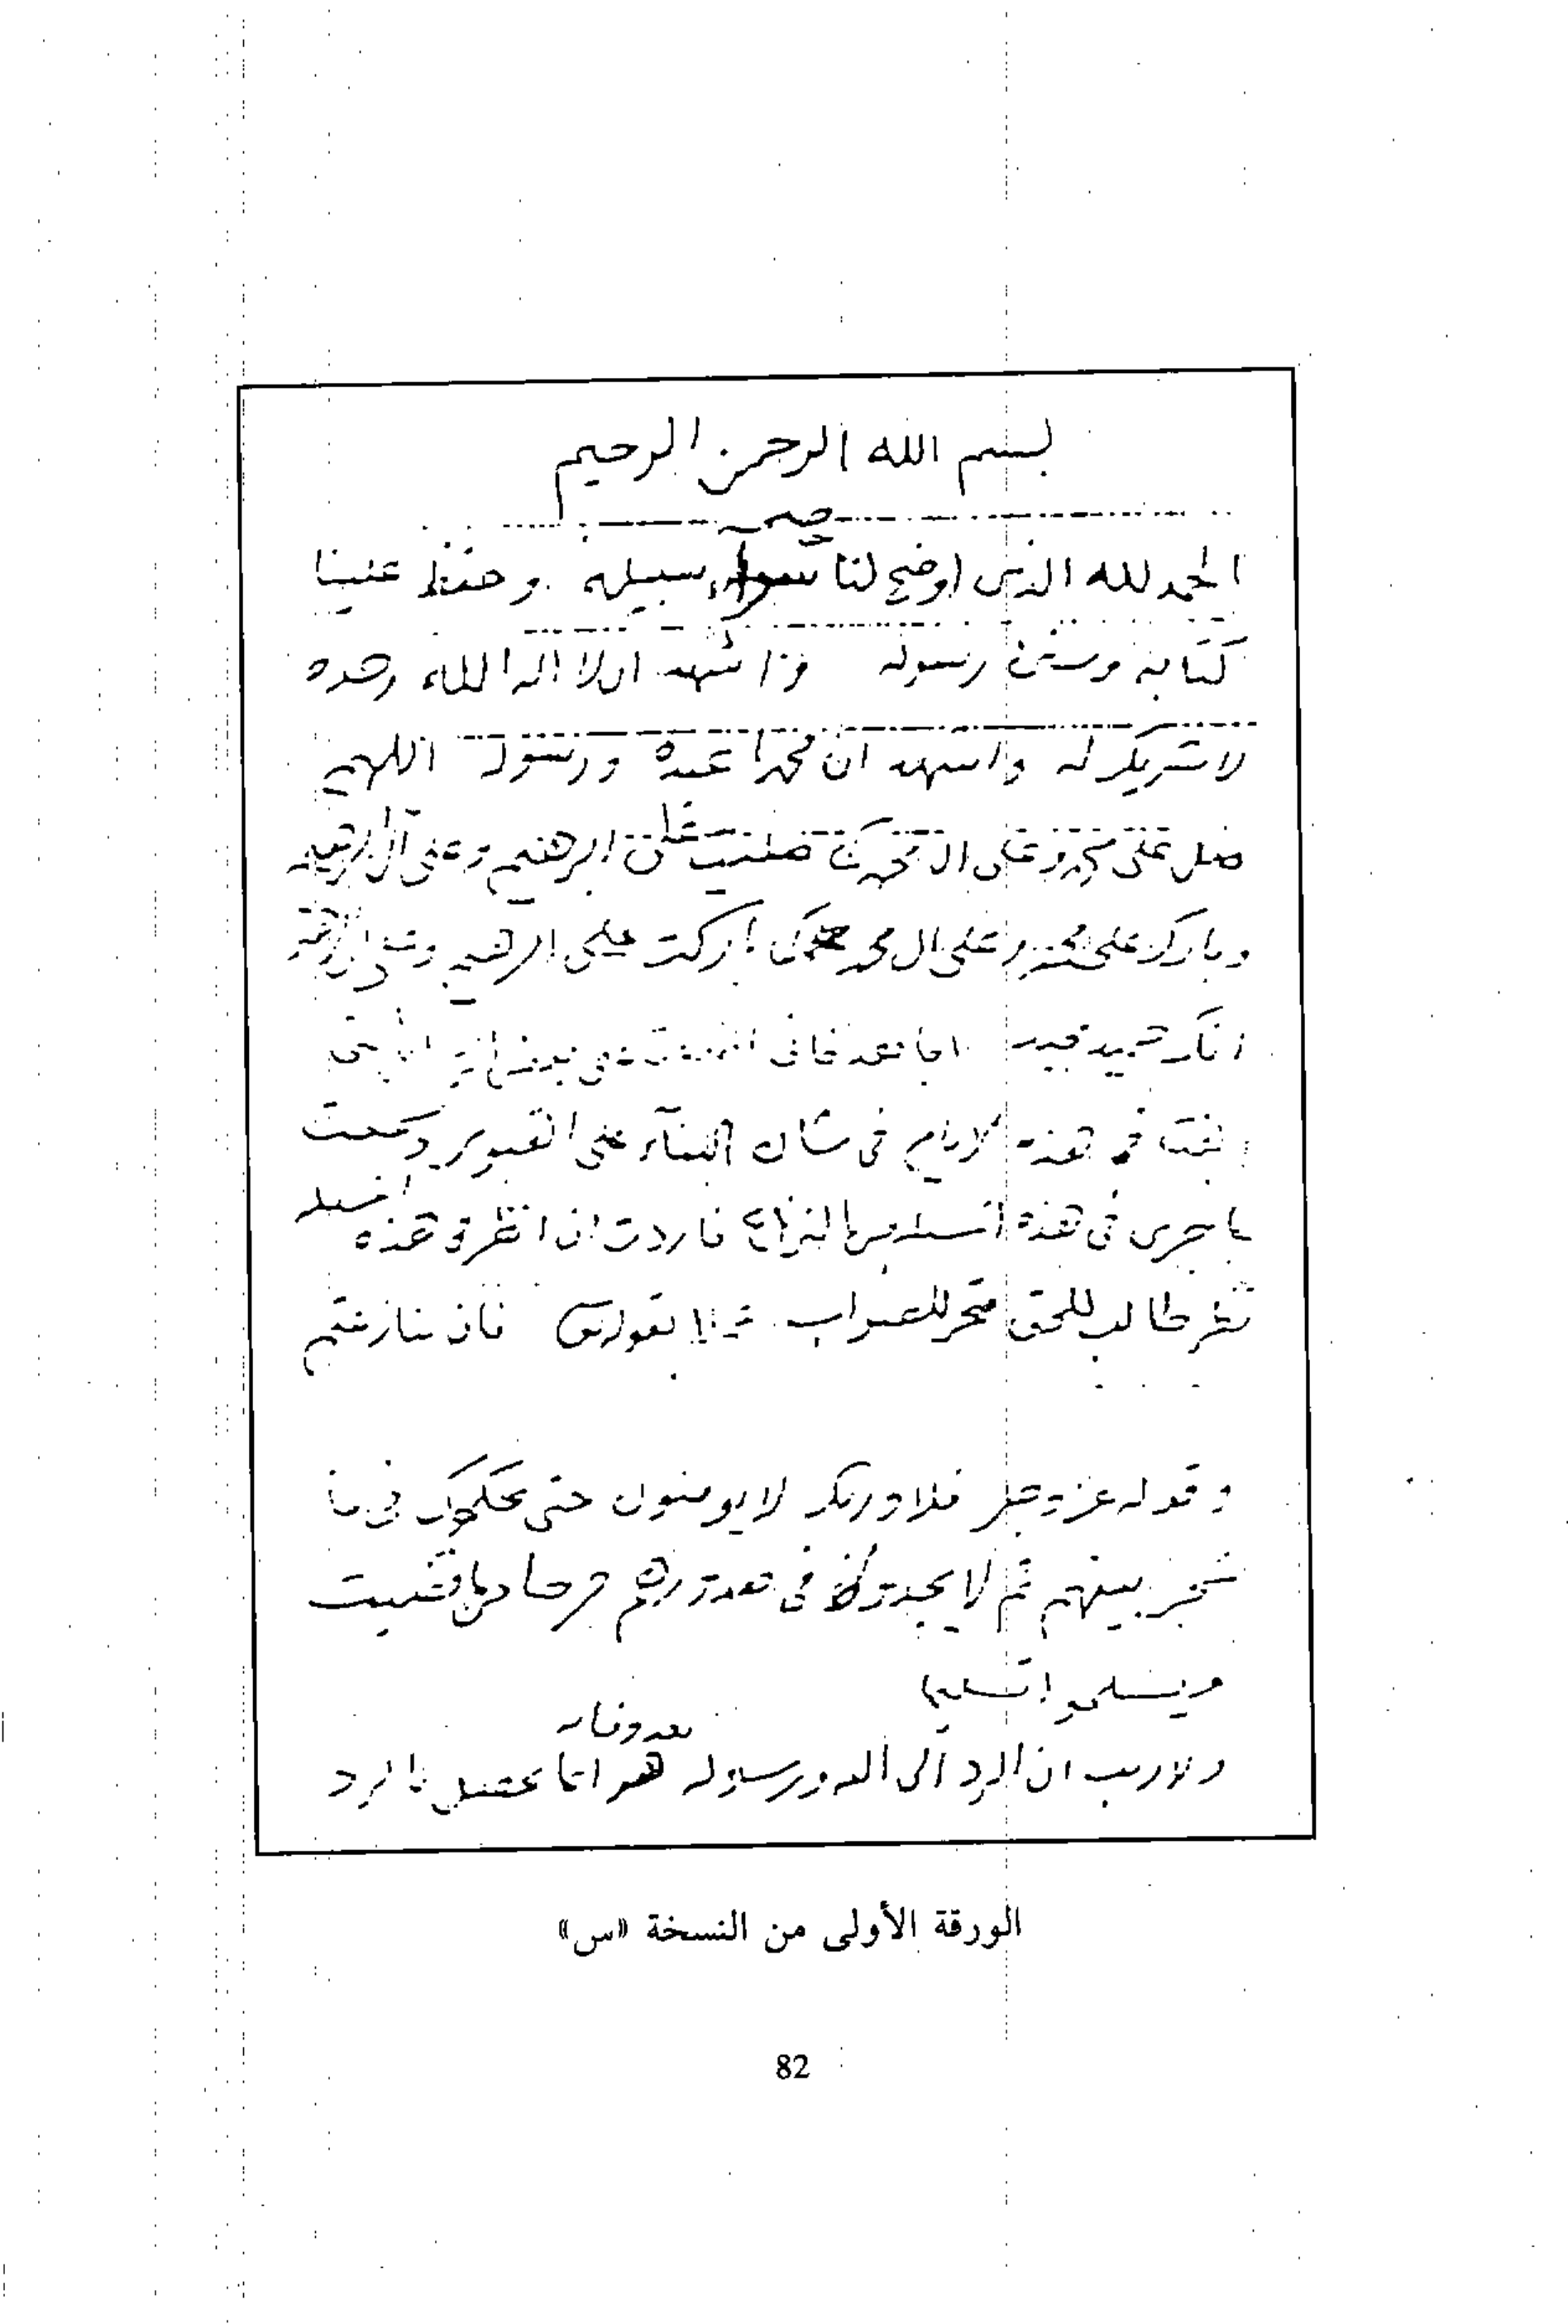 بسم الله الرحمن الرحيم
الحمد لله الذي اوضح لنا سواء سبيله وحفظ علينا
كتابه وسنن رسوله واشهد ان لا اله الا الله وحده
لا شريك له واشهد ان محمدا عبده ورسوله اللهم
صل على محمد وعلى ال محمد كما صليت على ابرهيم وعلى آل ابرهيم
وبارك على محمد وعلى ال محمد كما باركت على ابرهيم وعلى ال ابرهيم
انك حميد مجيد اما بعد فاني اطلعت على بعض
في هذه الايام في شان البناء على القبور وسمعت
ما جرى في هذه المسئلة من النزاع فاردت ان انظر في هذه المسئلة
نظر طالب للحق متحر للصواب بقوله فان تنازعتم
وقوله عز وجل فلا وربك لا يومنون حتى يحكموك في ما
شجر بينهم ثم لا يجدوا في صدورهم حرجا مما قضيت
ويسلموا تسليما
بعد وفاته
ولا ريب ان الرد الى الله ورسوله هو انما يحصل بالرد
الورقة الأولى من النسخة «س»
82